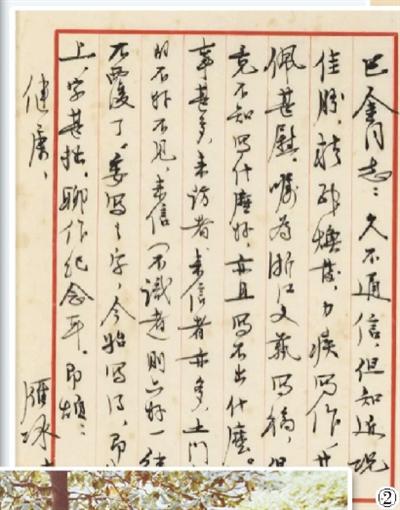 巴金同志：久不通信，但知近况
佳胜，精神焕发，力疾写作，甚
佩甚慰。嘱为浙江文藝写稿，但
竟不知写什麽好，亦且写不出什麽。
事甚多，来访者、来信者亦多，上门
的不好不见，来信（不识者）则只好一律
不覆了。委写之字，今始写得，即
上，字甚拙，聊作纪念耳。即颂：
健康、
雁冰
②